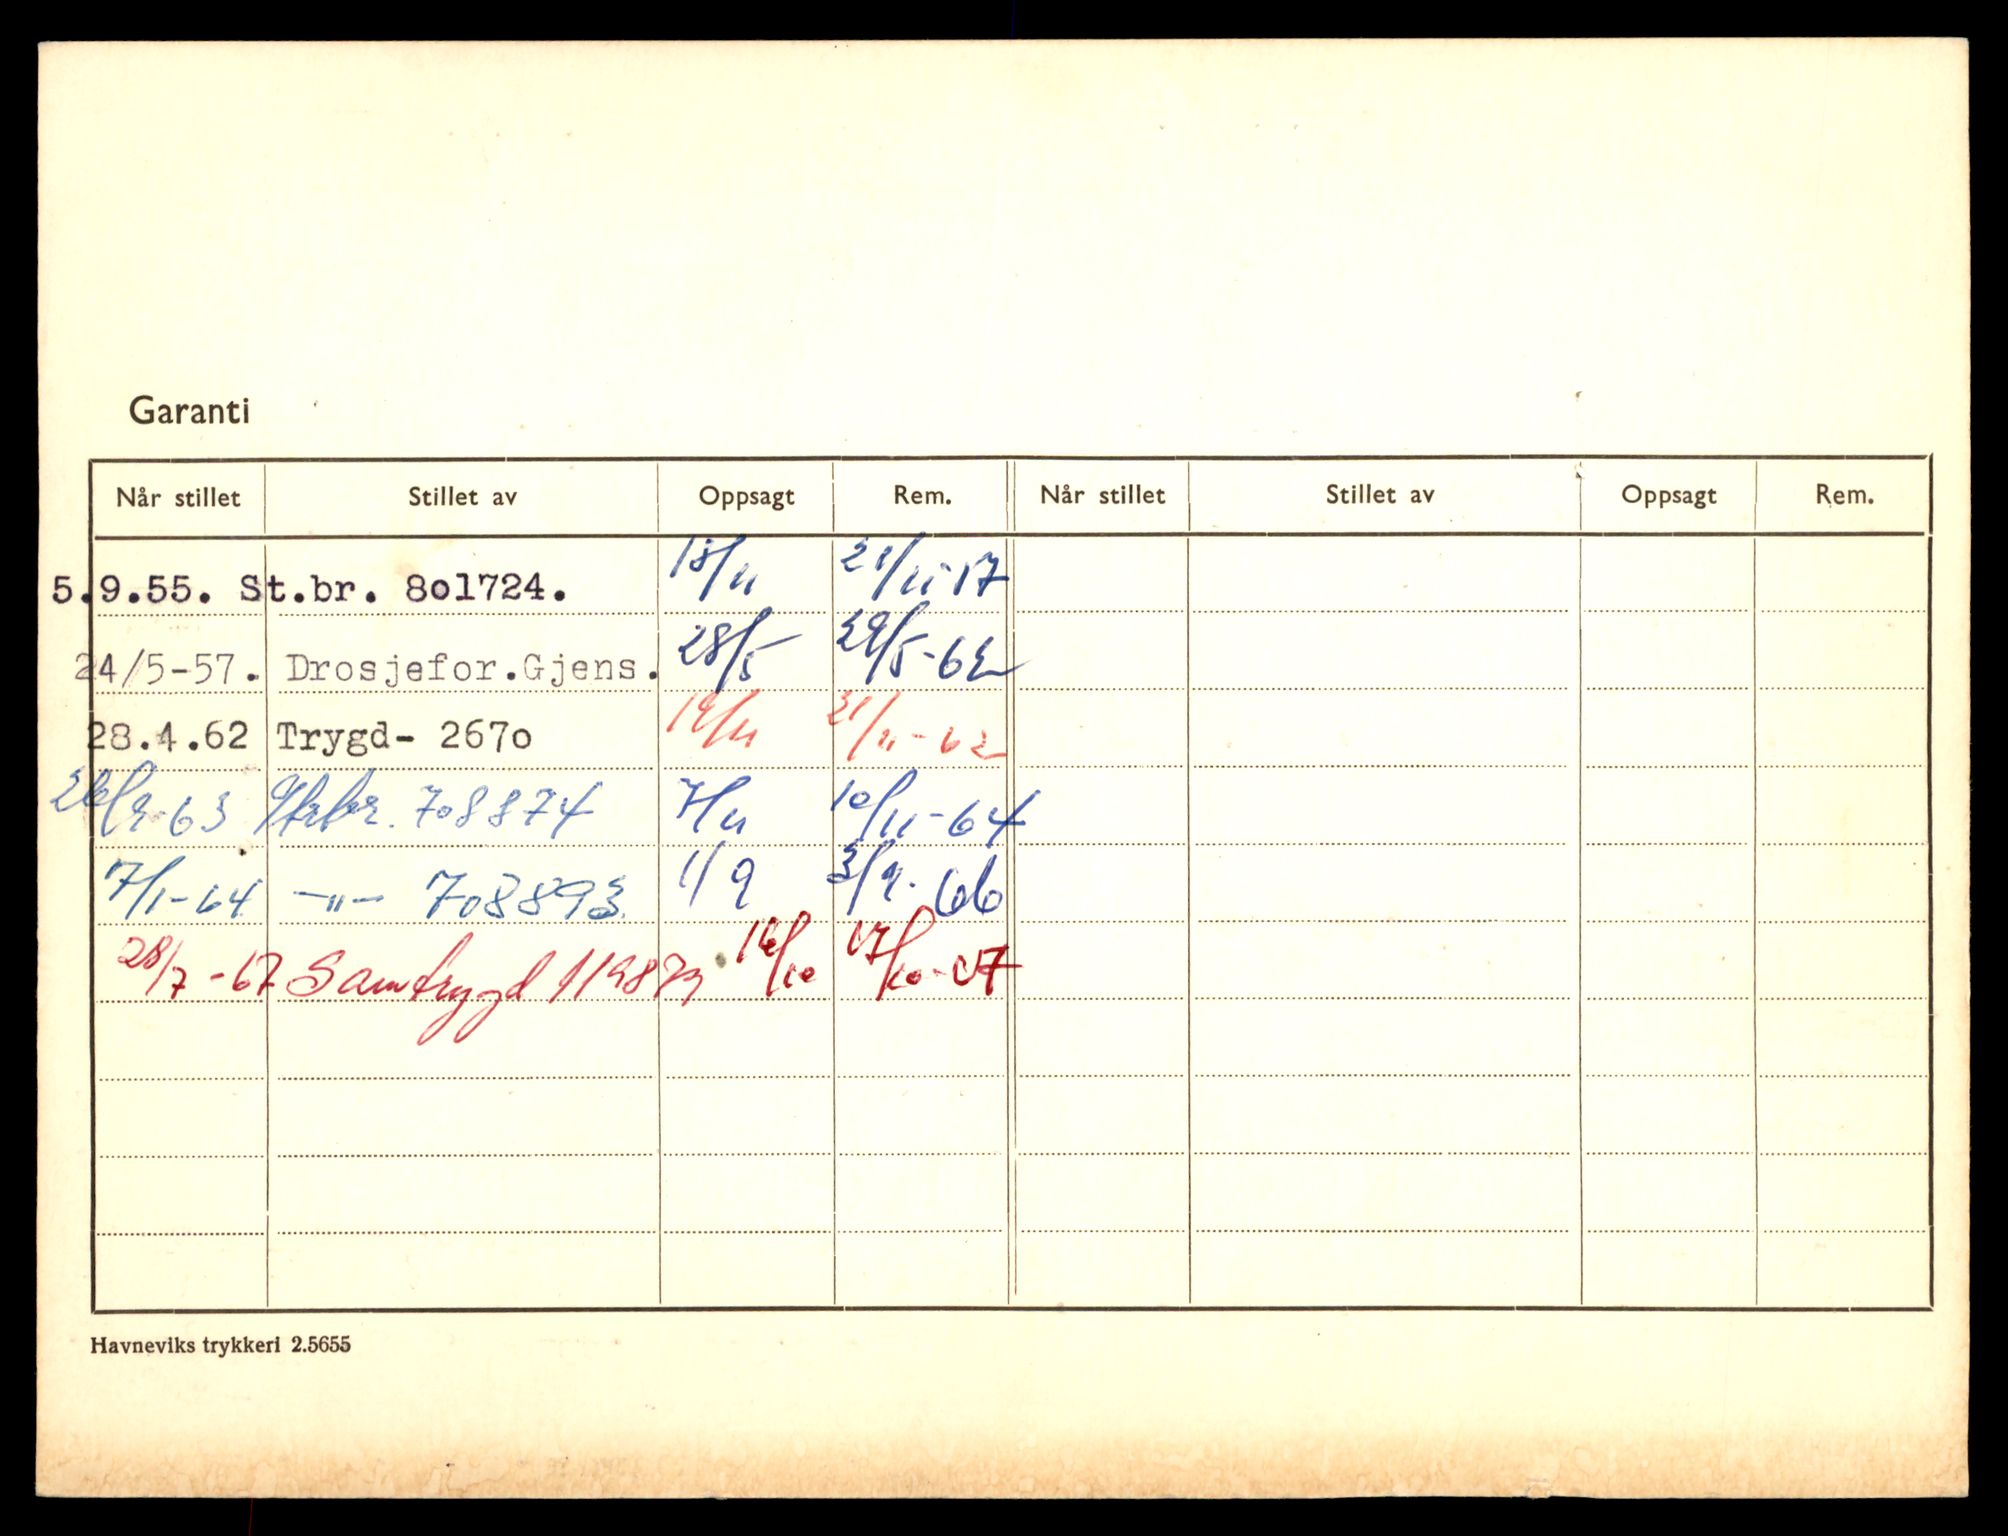 Garanti
Når stillet Stillet av Oppsagt Rem. Når stillet Stillet av Oppsagt Rem.
5.9.55. St.br. 8o1724. 18/11 21/11-57
24/5-57. Drosjefor.Gjens. 28/5 29/5-62
28.4.62 Trygd- 267o 19/11 21/11-62
26/9-63 Strbr. 708874 7/11 10/11-64
7/1-64 -"- 708893 1/9 3/9-66
28/7-67 Samtrygd 119879 16/10 17/10-67
Havneviks trykkeri 2.5655